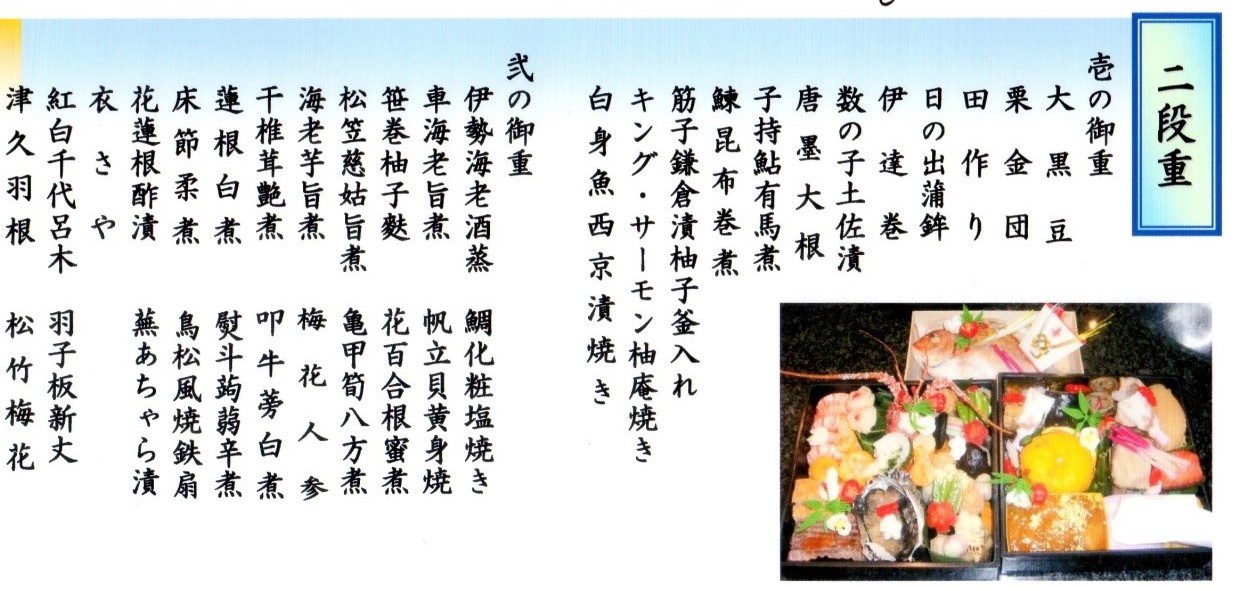 二段重
壱の御重
大黒豆
栗金団
田作り
日の出蒲鉾
伊達巻
数の子土佐漬
唐墨大根
子持鮎有馬煮
鰊昆布巻煮
筋子鎌倉漬柚子釜入れ
キング・サーモン柚庵焼き
白身魚西京漬焼き
弐の御重
伊勢海老酒蒸
鯛化粧塩焼き
車海老旨煮
帆立貝黄身焼
笹巻柚子麩
花百合根蜜煮
松笠慈姑旨煮
亀甲筍八方煮
海老芋旨煮
梅花人参
干椎茸艶煮
叩牛蒡白煮
蓮根白煮
熨斗蒟蒻辛煮
床節柔煮
鳥松風焼鉄扇
花蓮根酢漬
蕪あちゃら漬
衣さや
紅白千代呂木
羽子板新丈
津久羽根
松竹梅花